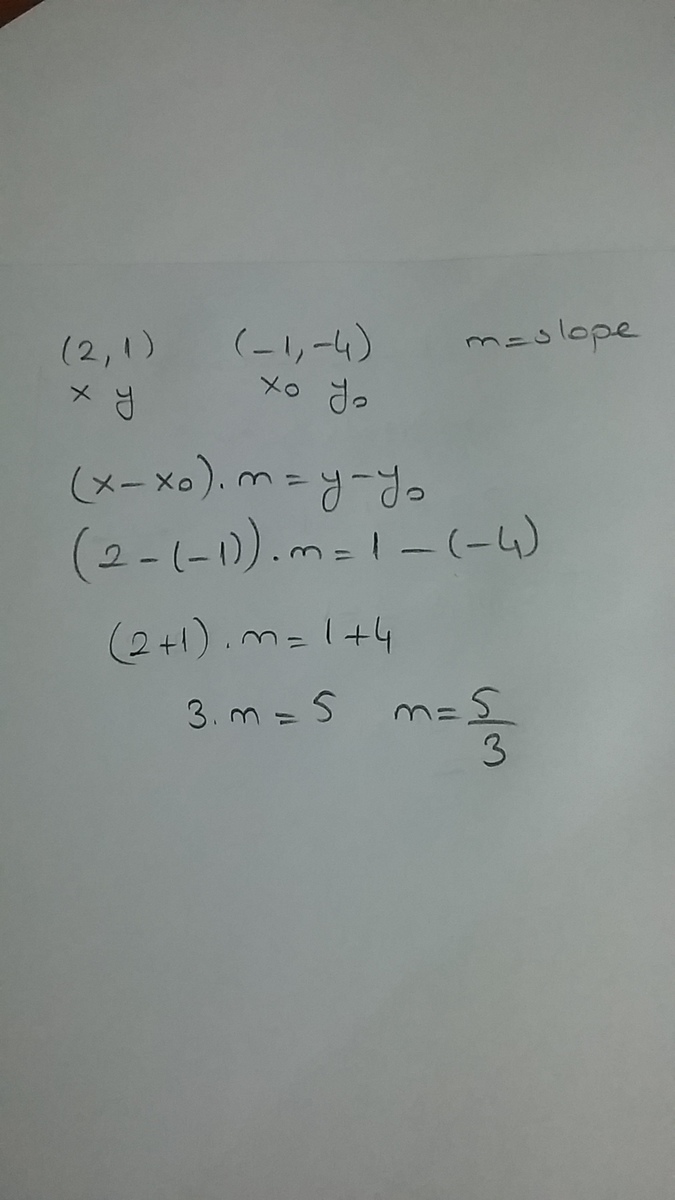 (2,1) (-1,-4) m=slope
x y x0 y0
(x-x0).m=y-y0
(2-(-1)).m=1-(-4)
(2+1).m=1+4
3.m=5 m=5/3